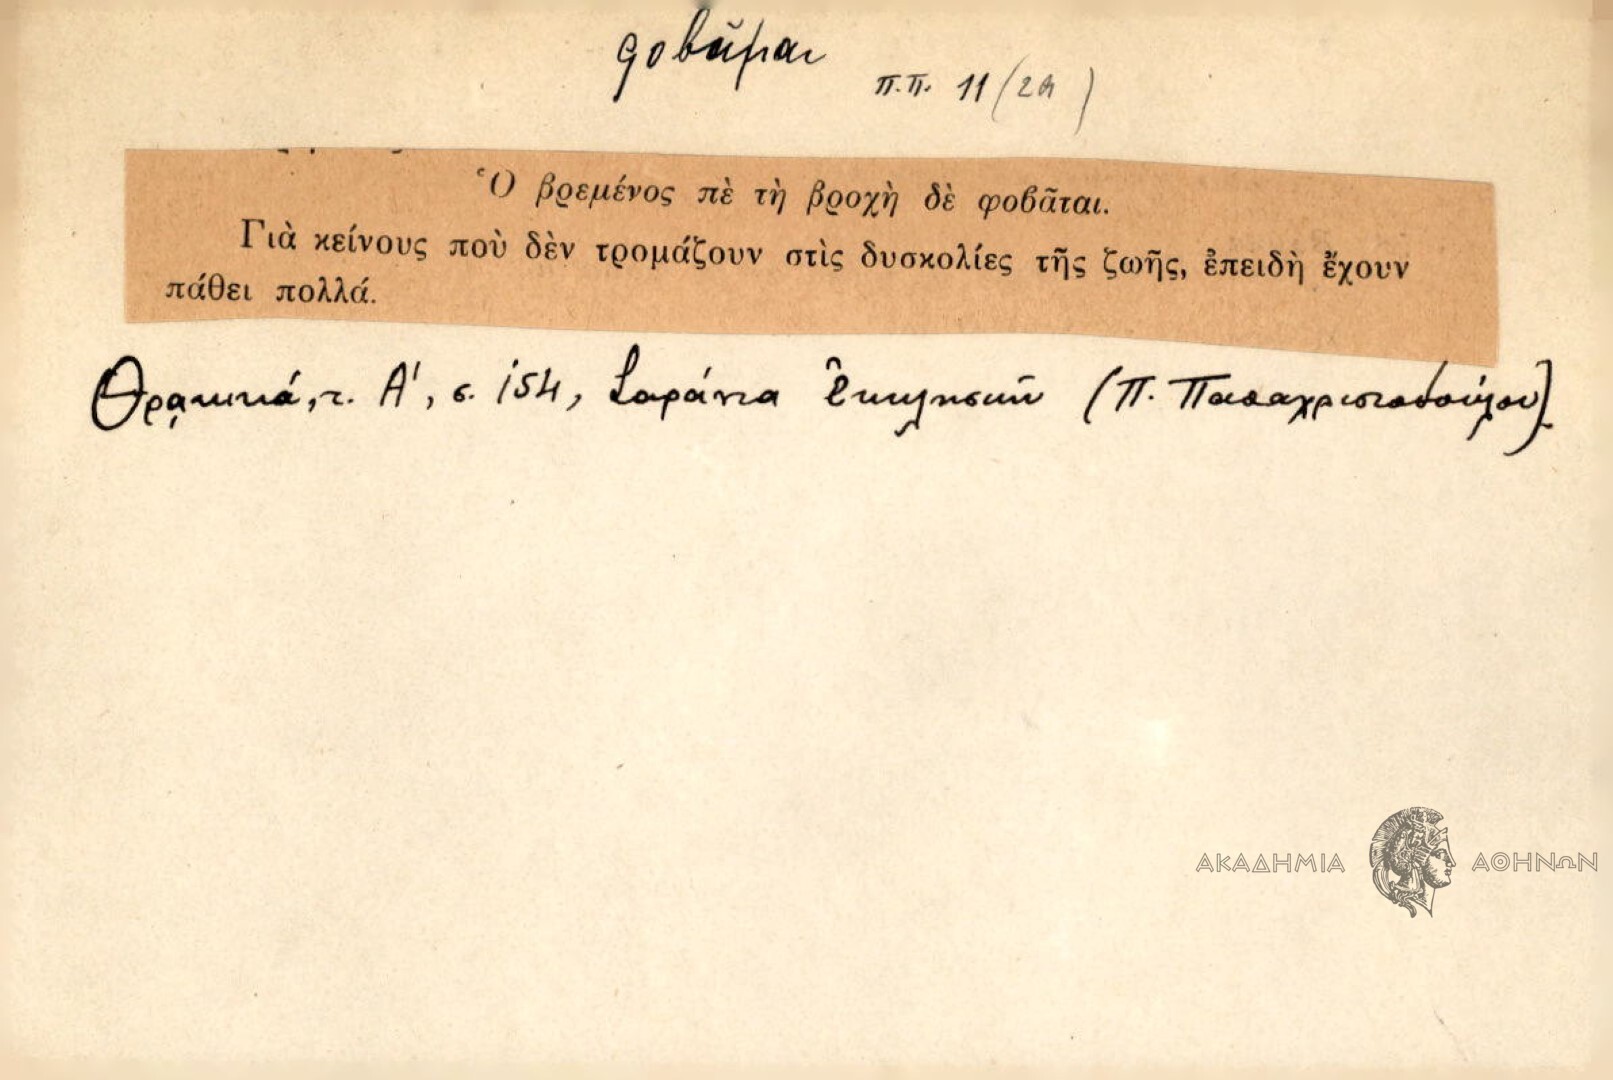 φοβᾶμαι
π.π. 11 (2α)
Ὁ βρεμένος πὲ τὴ βροχὴ δὲ φοβᾶται.
Γιὰ κείνους ποὺ δὲν τρομάζουν στὶς δυσκολίες τῆς ζωῆς, ἐπειδὴ ἔχουν
πάθει πολλά.
Θρακικά, τ. Α', σ. 154, Σαράντα Ἐκκλησιῶν (Π. Παπαχριστοδούλου)
ΑΚΑΔΗΜΙΑ ΑΘΗΝΩΝ